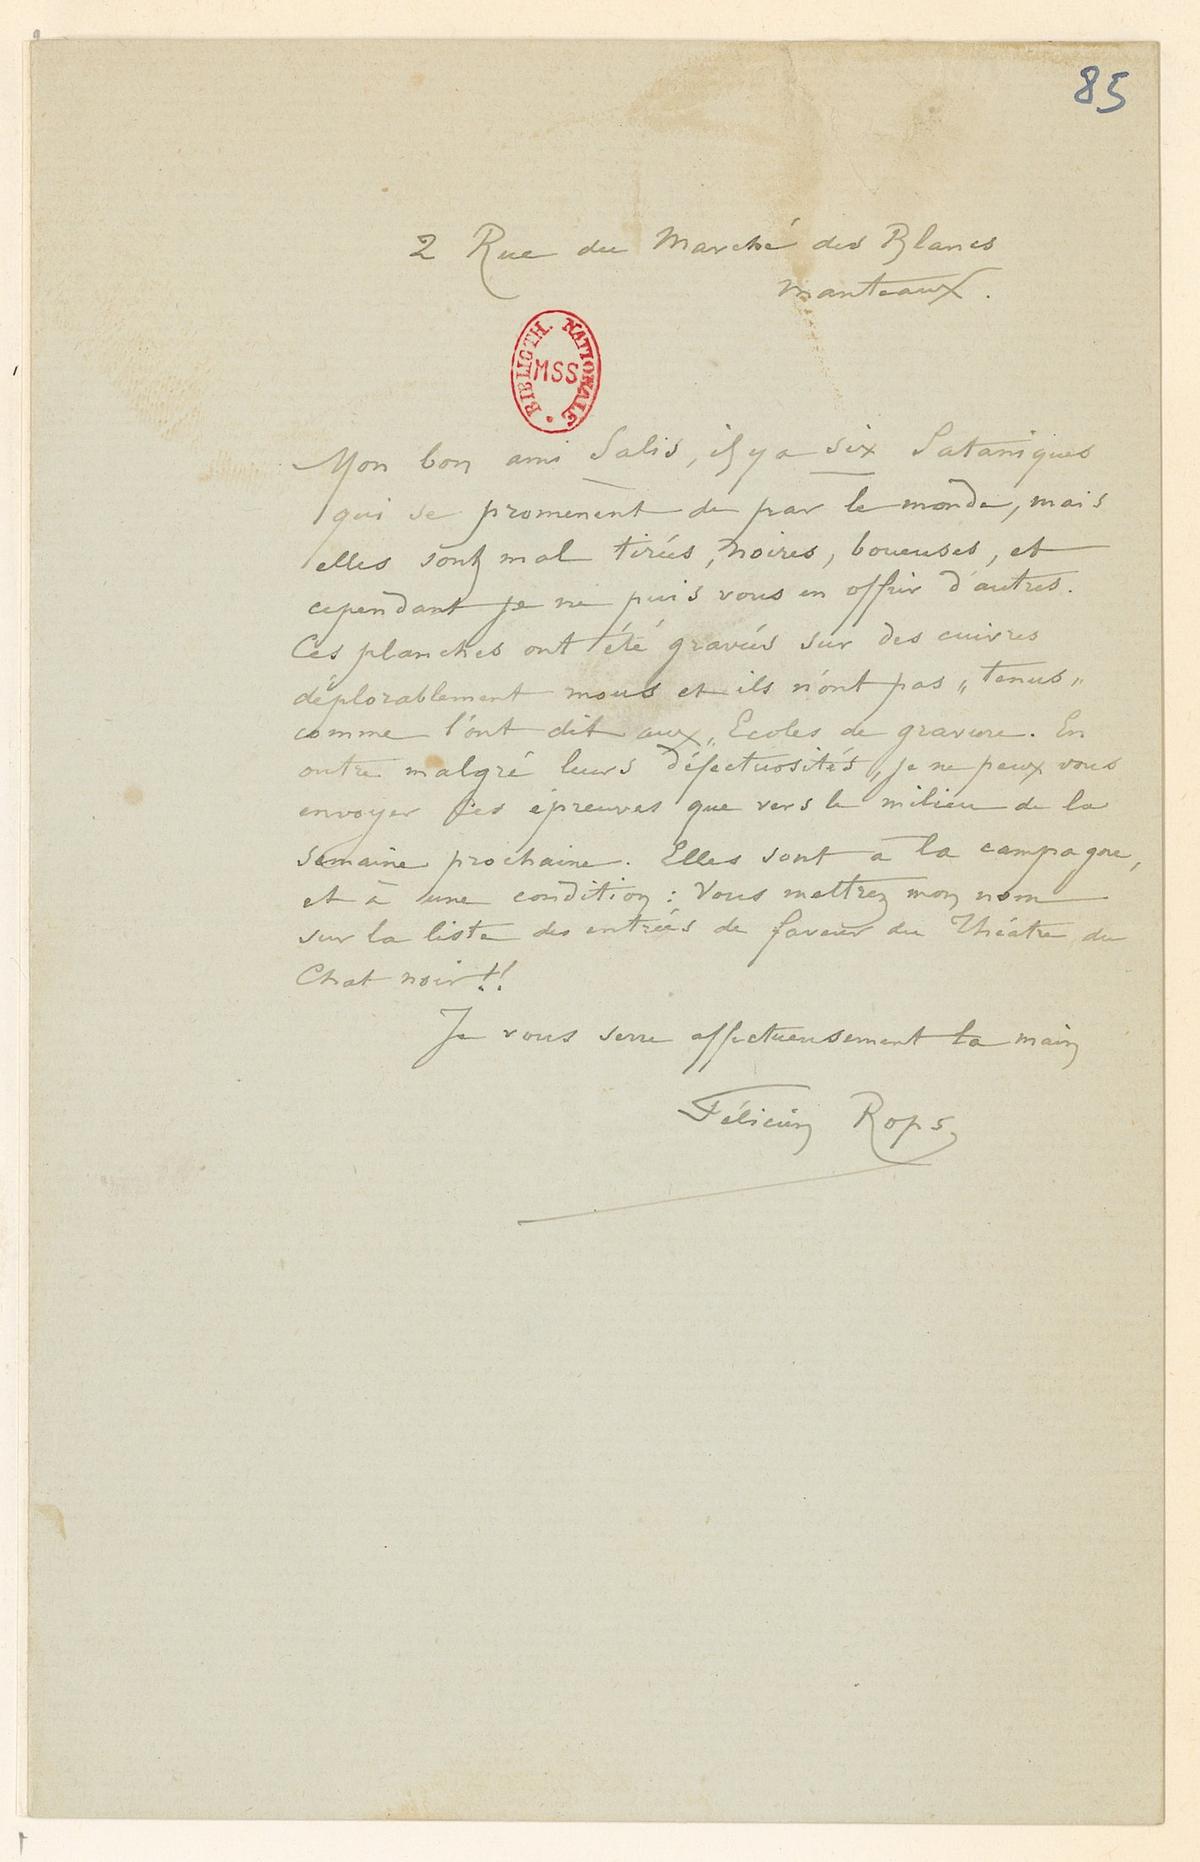 85
2 Rue du Marché des Blancs
Manteaux.
BIBLIOTH. NATIONALE
MSS
Mon bon ami Salis, il y a six Sataniques
qui se promènent de par le monde, mais
elles sont mal tirées, noires, boueuses, et
cependant je ne puis vous en offrir d'autres.
Ces planches ont été gravées sur des cuivres
déplorablement mous et ils n'ont pas „tenus„
comme l'ont dit aux „Ecoles de gravure. En
outre malgré leurs défectuosités, je ne peux vous
envoyer les épreuves que vers le milieu de la
semaine prochaine. Elles sont à la campagne,
et à une condition : Vous mettrez mon nom
sur la liste des entrées de faveur du Théâtre du
Chat noir !!
Je vous serre affectueusement la main
Félicien Rops